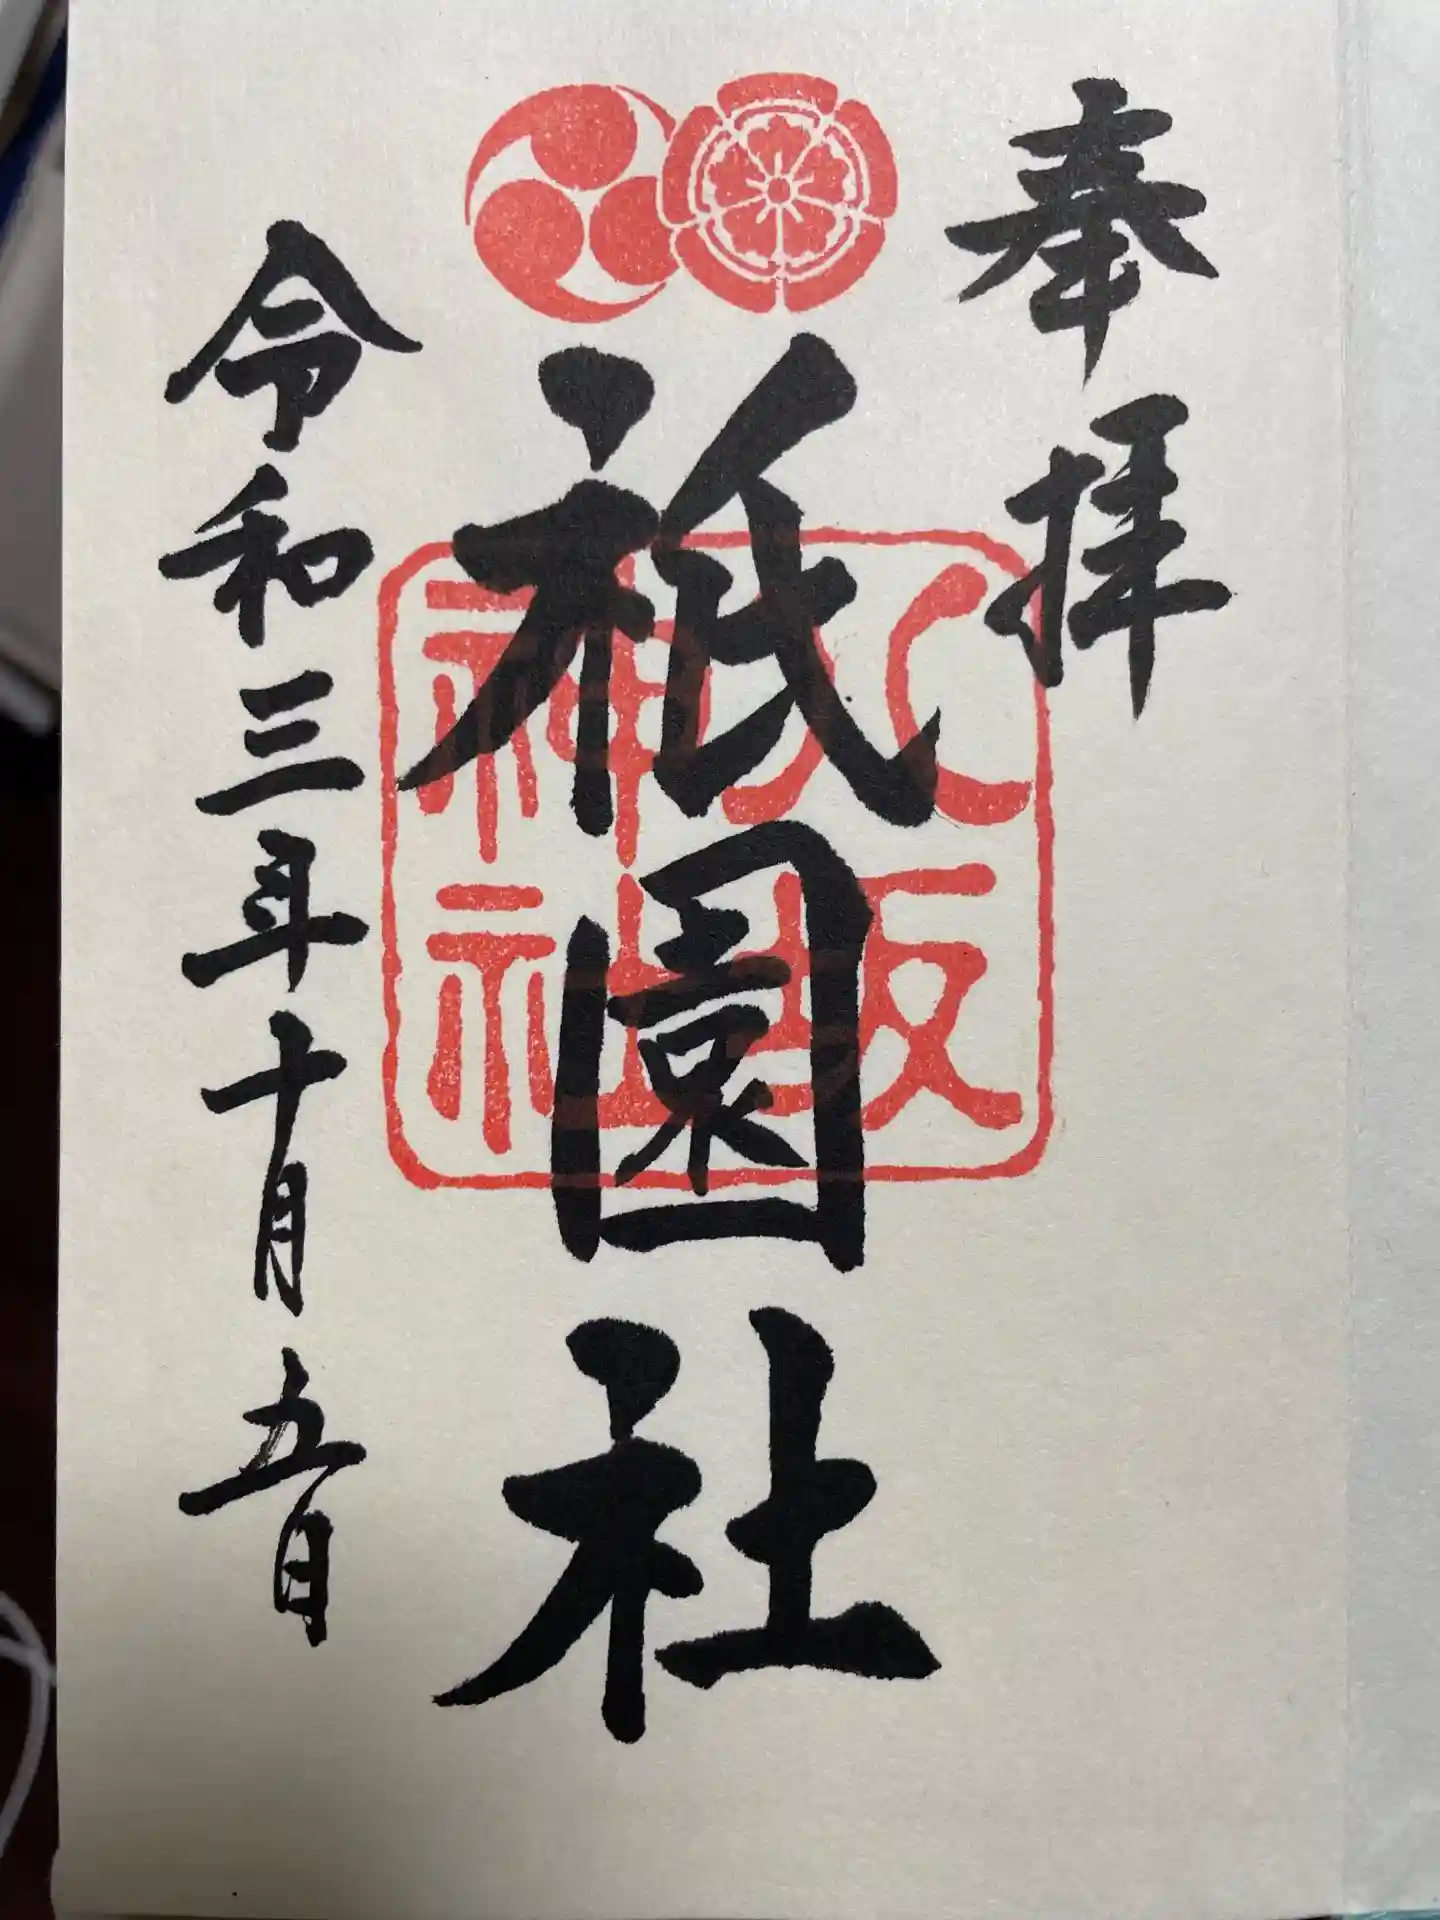 奉拝
八坂神社
祇園社
令和三年十月五日